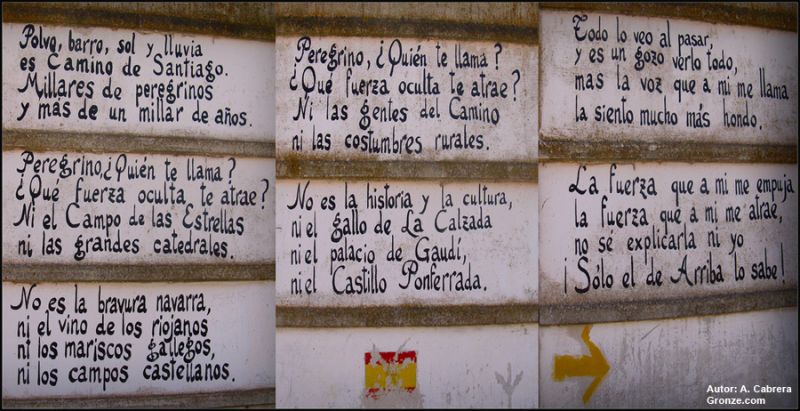 Polvo, barro, sol y lluvia
es Camino de Santiago.
Millares de peregrinos
y más de un millar de años.
Peregrino, ¿Quién te llama?
¿Qué fuerza oculta te atrae?
Ni el Campo de las Estrellas
ni las grandes catedrales.
No es la bravura navarra,
ni el vino de los riojanos
ni los mariscos gallegos,
ni los campos castellanos.
Peregrino, ¿Quién te llama?
¿Qué fuerza oculta te atrae?
Ni las gentes del Camino
ni las costumbres rurales.
No es la historia y la cultura,
ni el gallo de La Calzada
ni el palacio de Gaudí,
ni el Castillo Ponferrada.
Todo lo veo al pasar,
y es un gozo verlo todo,
mas la voz que a mi me llama
la siento mucho más hondo.
La fuerza que a mi me empuja
la fuerza que a mi me atrae,
no sé explicarla ni yo
¡Sólo el de Arriba lo sabe!
Autor: A. Cabrera
Gronze.com